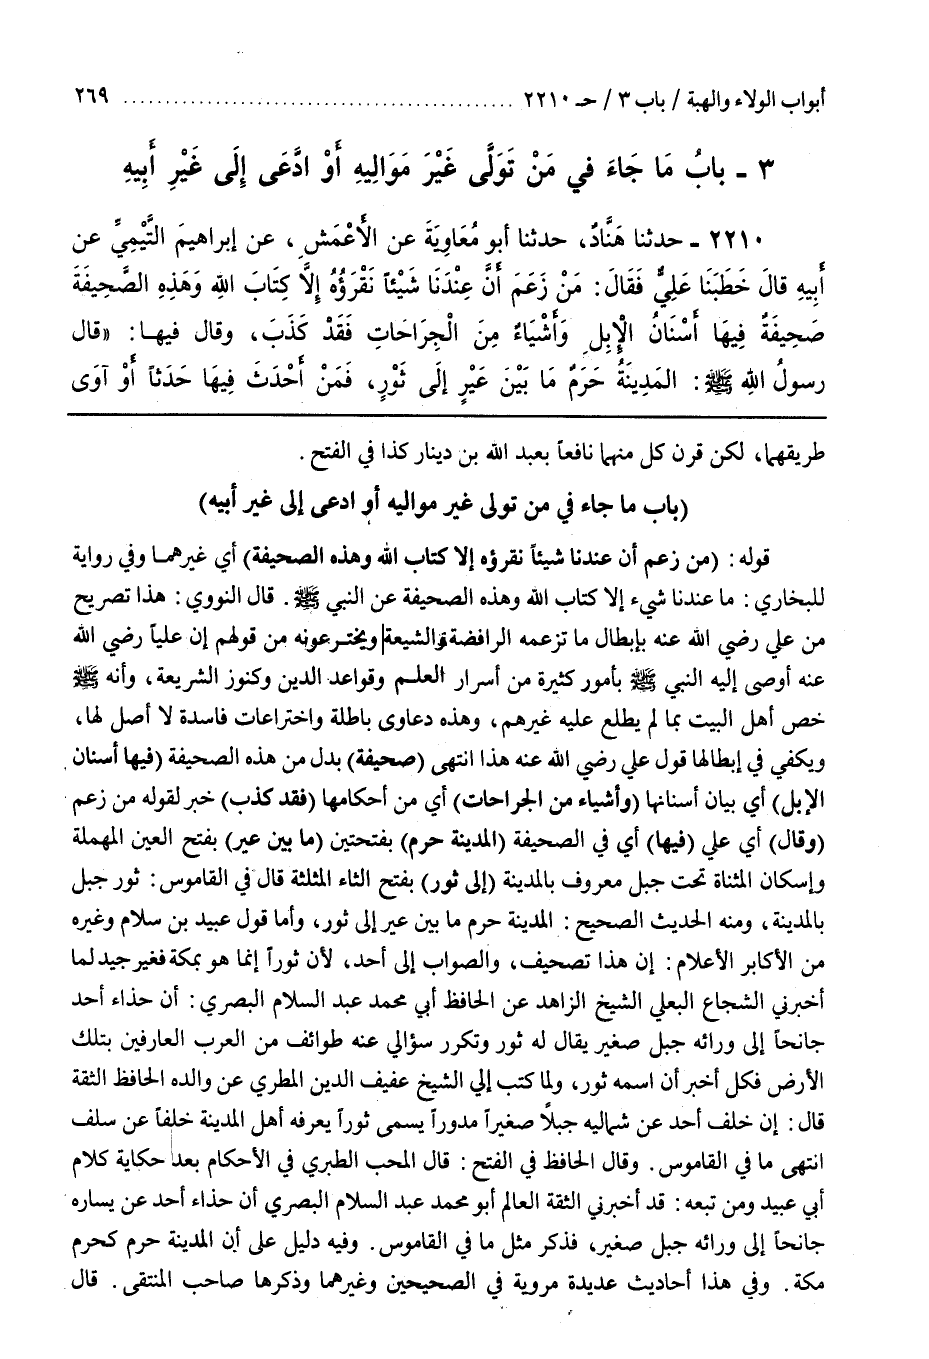 أبواب الولاء والهبة / باب ٣ / حـ ٢٢١٠ ............................................ ٢٦٩
٣ - بابُ مَا جَاءَ في مَنْ تَوَلَّى غَيْرَ مَوَالِيهِ أَوْ ادَّعَى إِلَى غَيْرِ أَبِيهِ
٢٢١٠ - حدثنا هَنَّادٌ، حدثنا أبو مُعَاوِيَةَ عن الأَعْمَشِ، عن إبراهيمَ التَّيْمِيِّ عن
أَبِيهِ قالَ خَطَبَنَا عَلِيٌّ فَقَالَ: مَنْ زَعَمَ أَنَّ عِنْدَنَا شَيْئاً نَقْرَؤُهُ إِلَّا كِتَابَ اللهِ وَهَذِهِ الصَّحِيفَةَ
صَحِيفَةٌ فِيهَا أَسْنَانُ الْإِبِلِ وَأَشْيَاءٌ مِنَ الْجِرَاحَاتِ فَقَدْ كَذَبَ، وقال فيهـا: «قال
رسولُ اللهِ ﷺ: المَدِينَةُ حَرَمٌ مَا بَيْنَ عَيْرٍ إِلَى ثَوْرٍ، فَمَنْ أَحْدَثَ فِيهَا حَدَثاً أَوْ آوَى
طريقهما، لكن قرن كل منهما نافعاً بعبد الله بن دينار كذا في الفتح.
(باب ما جاء في من تولى غير مواليه أو ادعى إلى غير أبيه)
قوله: (من زعم أن عندنا شيئاً نقرؤه إلا كتاب الله وهذه الصحيفة) أي غيرهمـا وفي رواية
للبخاري: ما عندنا شيء إلا كتاب الله وهذه الصحيفة عن النبي ﷺ. قال النووي: هذا تصريح
من علي رضي الله عنه بإبطال ما تزعمه الرافضة والشيعة ويخترعونه من قولهم إن علياً رضي الله
عنه أوصى إليه النبي ﷺ بأمور كثيرة من أسرار العلـم وقواعد الدين وكنوز الشريعة، وأنه ﷺ
خص أهل البيت بما لم يطلع عليه غيرهم، وهذه دعاوى باطلة واختراعات فاسدة لا أصل لها،
ويكفي في إبطالها قول علي رضي الله عنه هذا انتهى (صحيفة) بدل من هذه الصحيفة (فيها أسنان
الإبل) أي بيان أسنانها (وأشياء من الجراحات) أي من أحكامها (فقد كذب) خبر لقوله من زعم
(وقال) أي علي (فيها) أي في الصحيفة (المدينة حرم) بفتحتين (ما بين عير) بفتح العين المهملة
وإسكان المثناة تحت جبل معروف بالمدينة (إلى ثور) بفتح الثاء المثلثة قال في القاموس: ثور جبل
بالمدينة، ومنه الحديث الصحيح: المدينة حرم ما بين عير إلى ثور، وأما قول عبيد بن سلام وغيره
من الأكابر الأعلام: إن هذا تصحيف، والصواب إلى أحد، لأن ثوراً إنما هو بمكة فغير جيد لما
أخبرني الشجاع البعلي الشيخ الزاهد عن الحافظ أبي محمد عبد السلام البصري: أن حذاء أحد
جانحاً إلى ورائه جبل صغير يقال له ثور وتكرر سؤالي عنه طوائف من العرب العارفين بتلك
الأرض فكل أخبر أن اسمه ثور، ولما كتب إلي الشيخ عفيف الدين المطري عن والده الحافظ الثقة
قال: إن خلف أحد عن شماليه جبلاً صغيراً مدوراً يسمى ثوراً يعرفه أهل المدينة خلفاً عن سلف
انتهى ما في القاموس. وقال الحافظ في الفتح: قال المحب الطبري في الأحكام بعد حكاية كلام
أبي عبيد ومن تبعه: قد أخبرني الثقة العالم أبو محمد عبد السلام البصري أن حذاء أحد عن يساره
جانحاً إلى ورائه جبل صغير، فذكر مثل ما في القاموس. وفيه دليل على أن المدينة حرم كحرم
مكة. وفي هذا أحاديث عديدة مروية في الصحيحين وغيرهما وذكرها صاحب المنتقى. قال